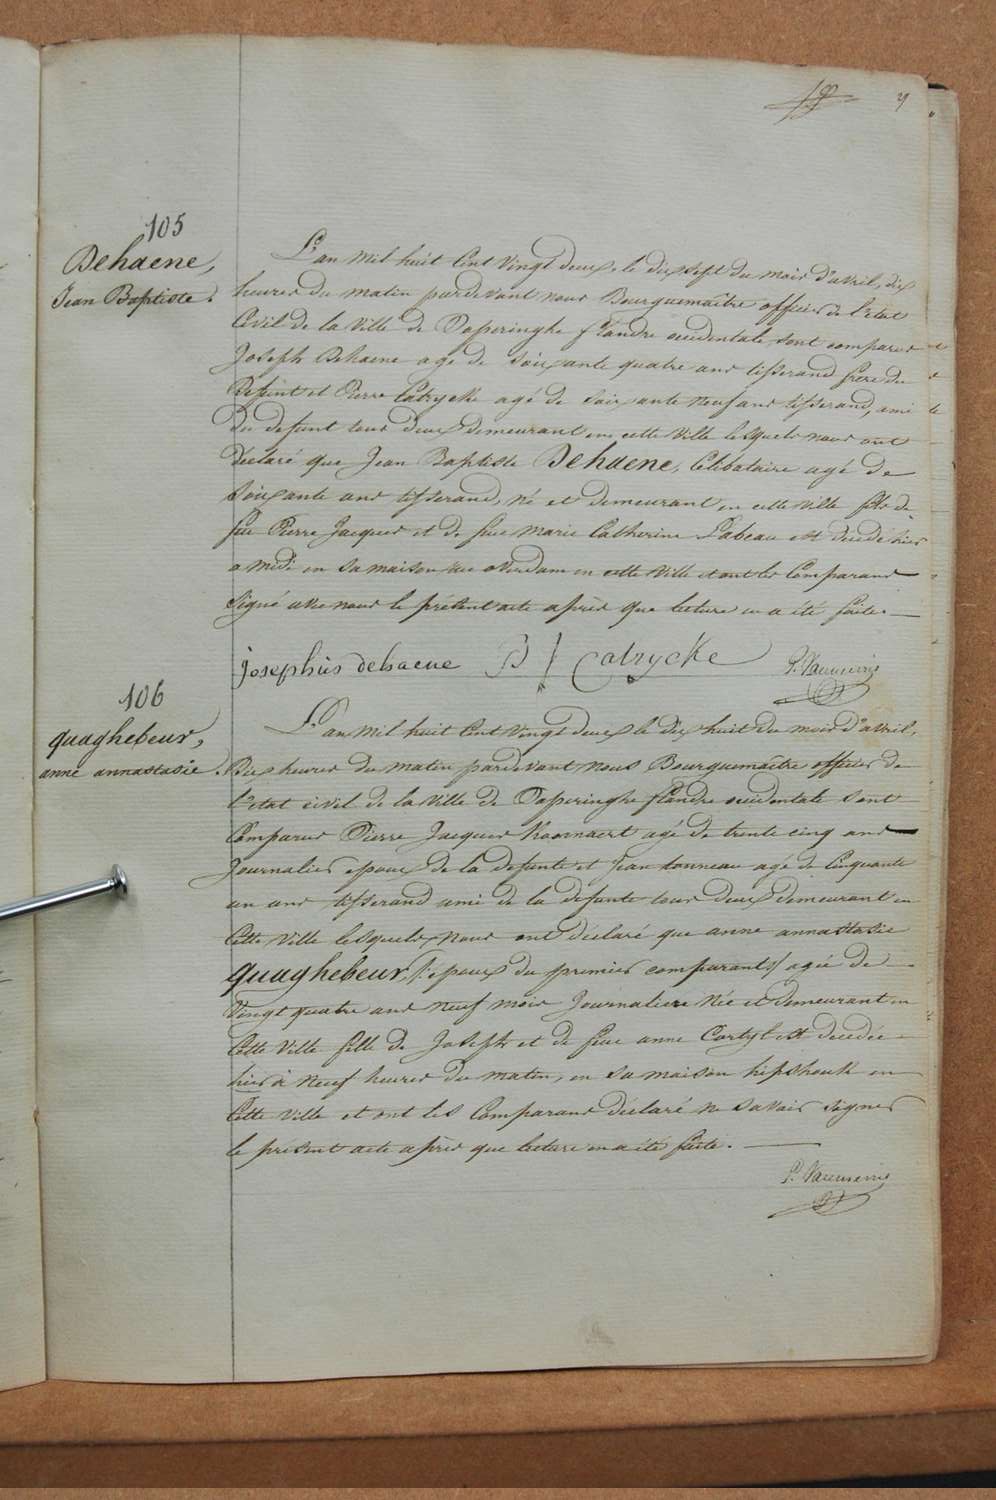 105
Dehaene,
Jean Baptiste.
L'an mil huit Cent Vingt deux, le dix sept du mois d'avril, dix
heures du matin pardevant nous Bourguemaître officier de l'Etat
Civil de la Ville de Poperinghe flandre occidentale, sont comparus
Joseph Dehaene agé de Soixante quatre ans tisserand frère du
Defunt et Pierre Catrycke agé de Soixante Neuf ans tisserand, ami
du defunt tous deux demeurant en cette Ville lesquels nous ont
Déclaré que Jean Baptiste Dehaene, Célibataire agé de
Soixante ans tisserand, né et demeurant en cette Ville fils de
feu Pierre Jacques et de feue Marie Catherine Labeau est decédé hier
a midi en sa maison rue overdam en cette Ville et ont les Comparans
Signé avec nous le présent acte après que lecture en a été faite.
josephus dehaene P J Catrycke
106
quaghebeur,
anne annastasie.
L'an mil huit Cent Vingt deux le dix huit du mois d'avril,
Dix heures du matin pardevant nous Bourguemaître officier de
l'etat civil de la Ville de Poperinghe flandre occidentale Sont
Comparus Pierre Jacques Koornaert agé de trente cinq ans
Journalier epoux de la defunte et Jean tonneau agé de Cinquante
un ans tisserand ami de la defunte tous deux demeurant en
Cette Ville lesquels nous ont déclaré que anne annastasie
quaghebeur, (épouse du premier comparant) agée de
Vingt quatre ans neuf mois Journaliere Née et demeurant en
Cette Ville fille de Joseph et de feue anne Cortyl est decedée
hier à neuf heures du matin, en sa maison hipshoek en
Cette Ville et ont les Comparans déclaré ne savoir signer
le présent acte après que lecture en a été faite.